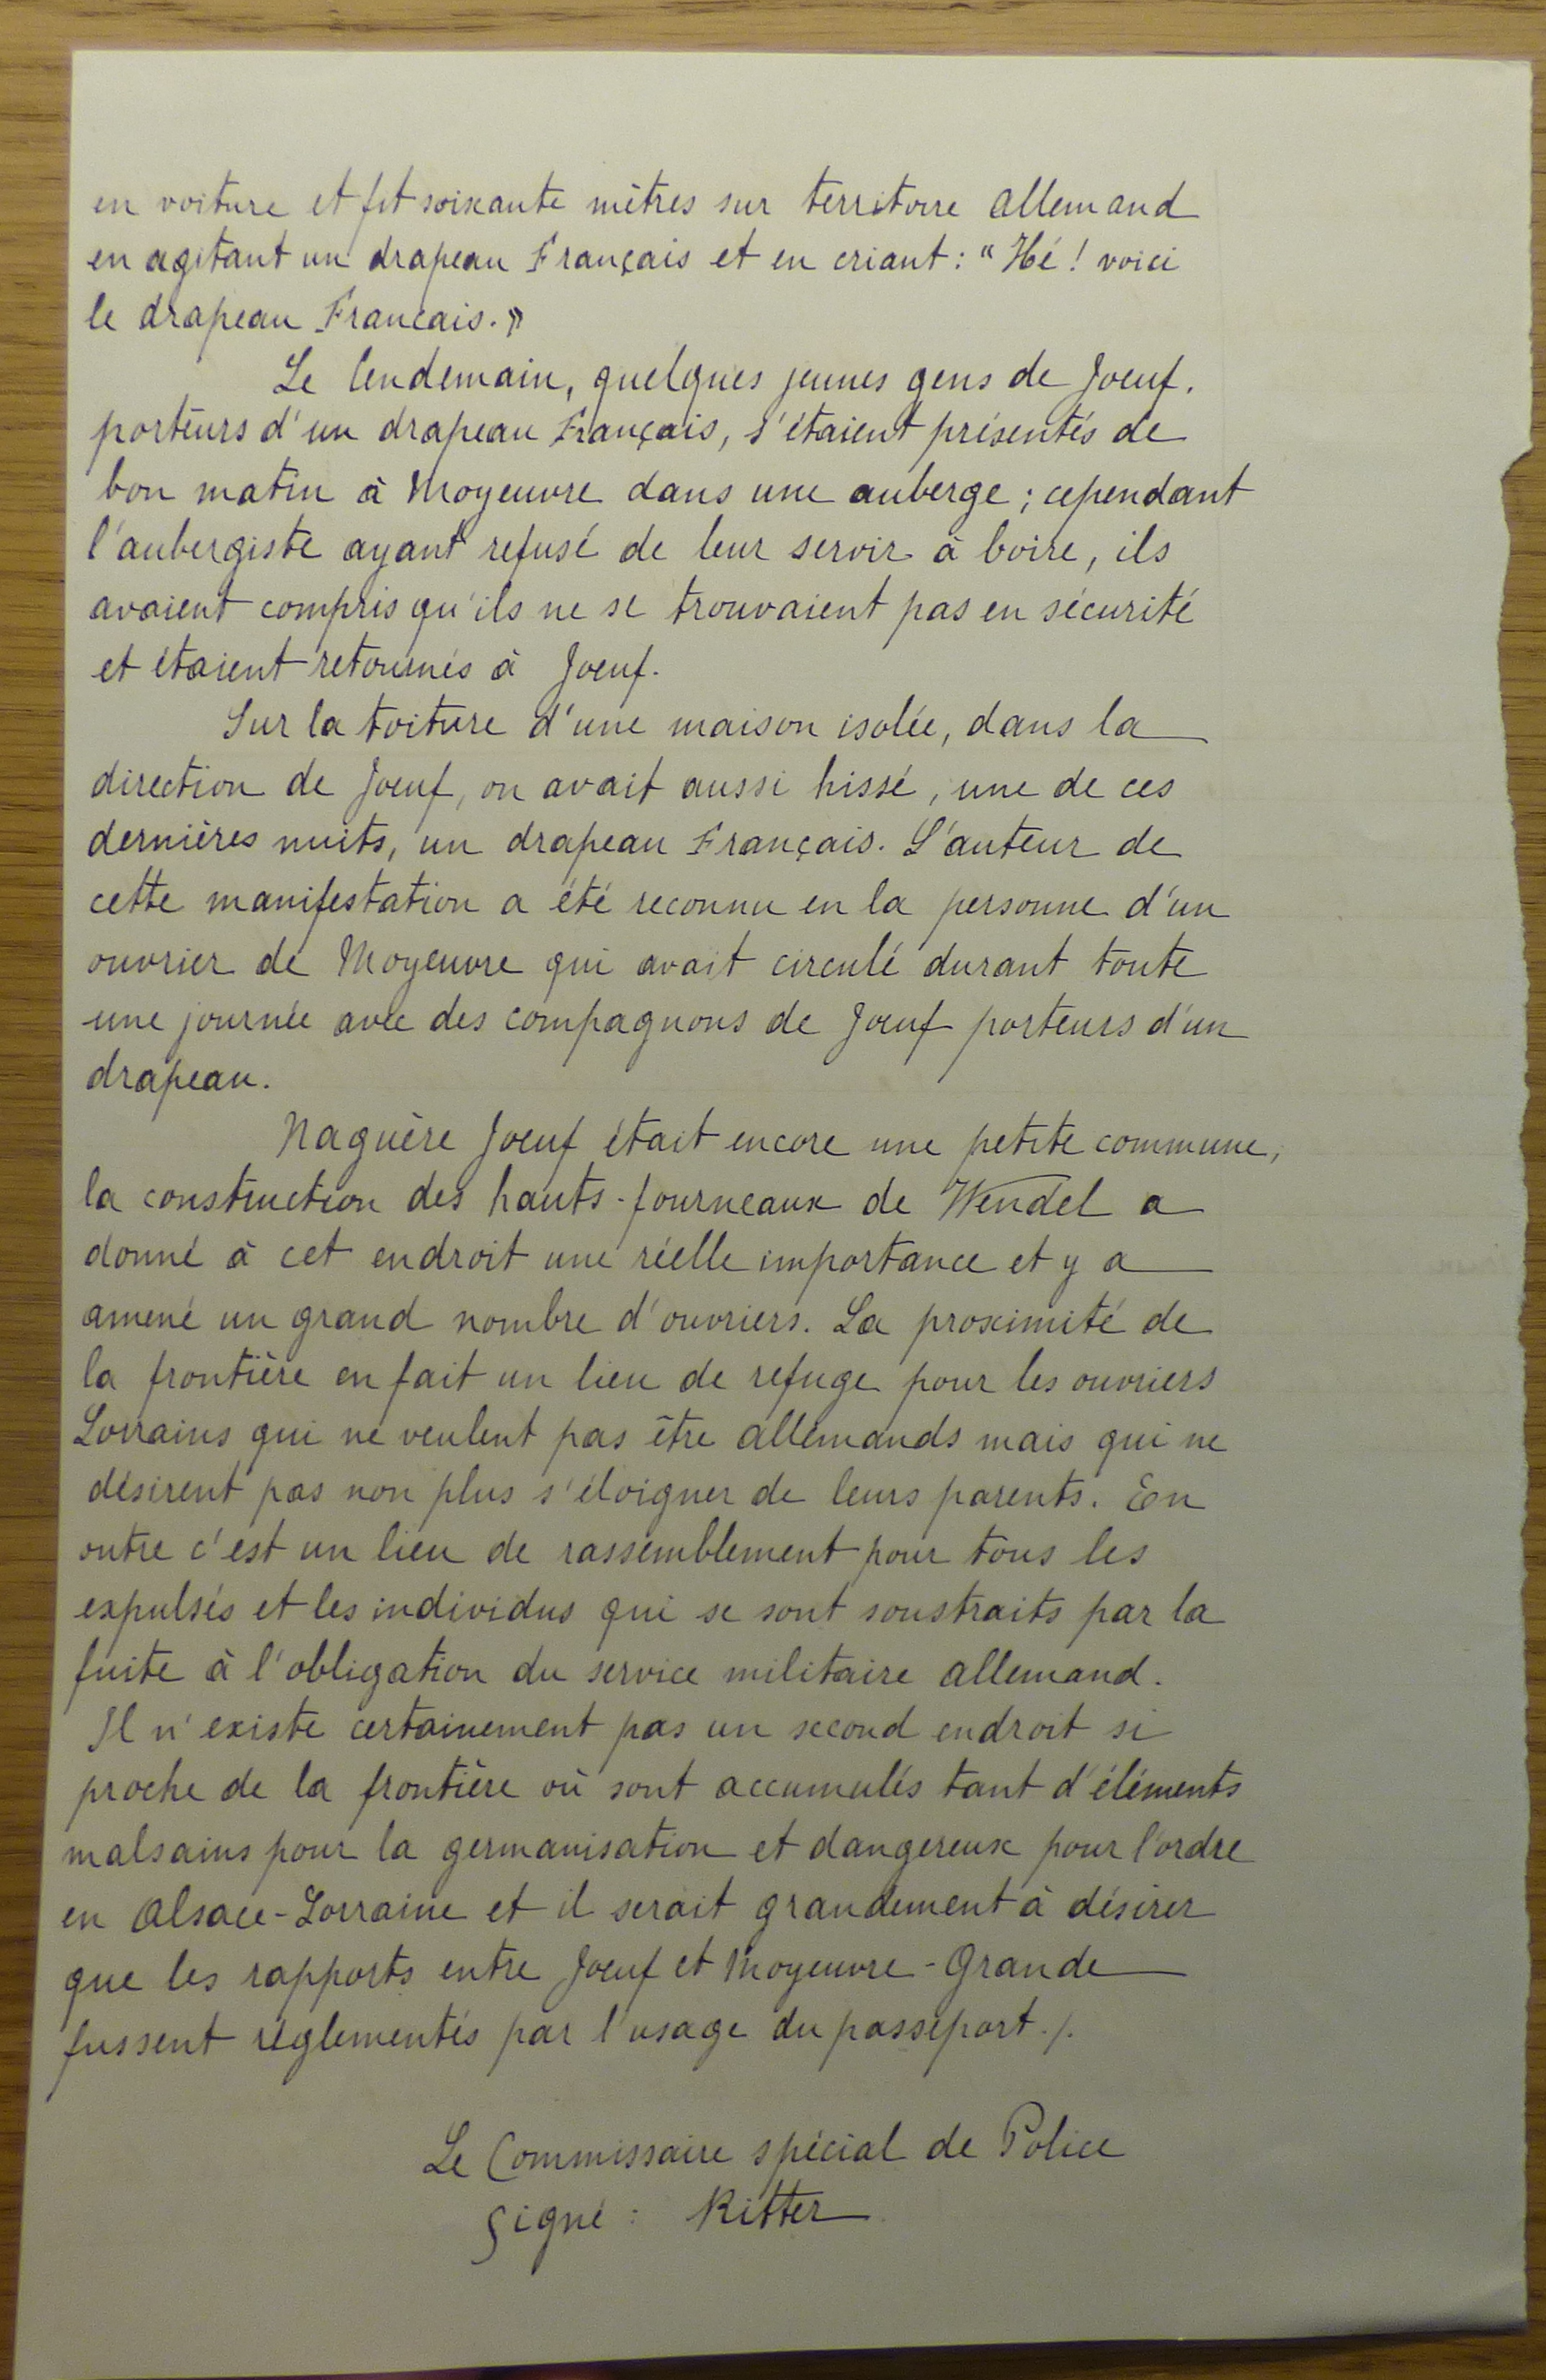 en voiture et fit soixante mètres sur territoire allemand
en agitant un drapeau Français et en criant : "Hé ! voici
le drapeau Francais."
Le lendemain, quelques jeunes gens de Joeuf.
porteurs d'un drapeau Français, s'étaient présentés de
bon matin à Moyeuvre dans une auberge ; cependant
l'aubergiste ayant refusé de leur servir à boire, ils
avaient compris qu'ils ne se trouvaient pas en sécurité
et étaient retournés à Joeuf.
Sur la toiture d'une maison isolée, dans la
direction de Joeuf, on avait aussi hissé, une de ces
dernières nuits, un drapeau Français. L'auteur de
cette manifestation a été reconnu en la personne d'un
ouvrier de Moyeuvre qui avait circulé durant toute
une journée avec des compagnons de Joeuf porteurs d'un
drapeau.
Naguère Joeuf était encore une petite commune,
la construction des hauts-fourneaux de Wendel a
donné à cet endroit une réelle importance et y a
amené un grand nombre d'ouvriers. La proximité de
la frontière en fait un lieu de refuge pour les ouvriers
Lorrains qui ne veulent pas être allemands mais qui ne
désirent pas non plus s'éloigner de leurs parents. En
outre c'est un lieu de rassemblement pour tous les
expulsés et les individus qui se sont soustraits par la
fuite à l'obligation du service militaire allemand.
Il n'existe certainement pas un second endroit si
proche de la frontière où sont accumulés tant d'éléments
malsains pour la germanisation et dangereux pour l'ordre
en Alsace-Lorraine et il serait grandement à désirer
que les rapports entre Joeuf et Moyeuvre-Grande
fussent réglementés par l'usage du passeport./.
Le Commissaire spécial de Police
Signé : Ritter